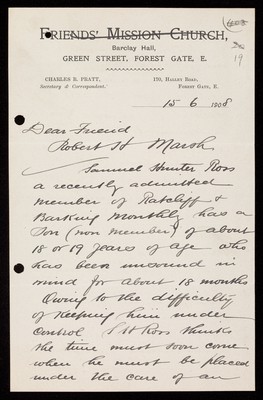 FRIENDS' MISSION CHURCH,
Barclay Hall,
GREEN STREET, FOREST GATE, E.
19
CHARLES R. PRATT,
Secretary & Correspondent.
170, HALLEY ROAD,
FOREST GATE, E.
15 6 1908
Dear Friend
Robert H Marsh
Samuel Hunter Ross
a recently admitted
member of Ratcliff &
Barking Monthly has a
Son (non member) of about
18 or 19 years of age who
has been unsound in
mind for about 18 months
Owing to the difficulty
of keeping him under
control S H Ross thinks
the time must soon come
when he must be placed
under the care of an